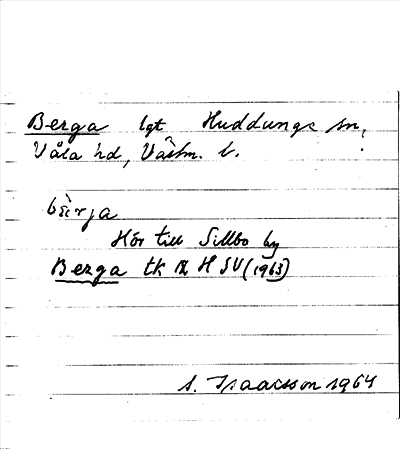 Berga lgt Huddunge sn,
Våla hd, Västm. l.
bärja
Hör till Sillbo by
Berga tk H SV (1963)
S. Isaacsson 1964